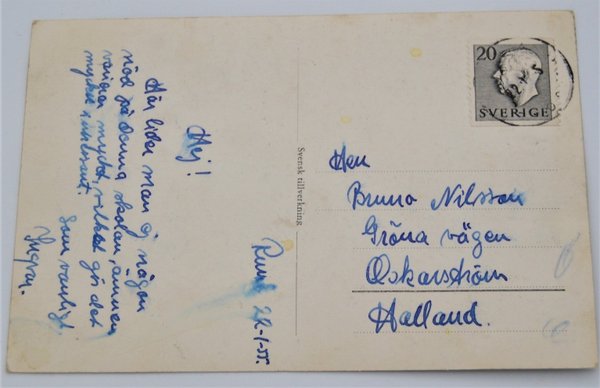 22-1-55.
Hej!
Här lider man ej någon
nöd på denna skolan, ämnen
mycket, vilket gör det
mycket intressant.
Som vanligt.
Ingvar.
Svensk tillverkning
20
SVERIGE
Herr
Bruno Nilsson
Gröna vägen
Oskarström
Halland.